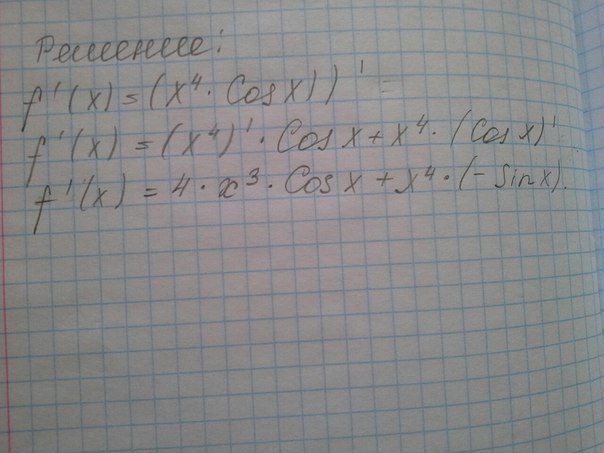 Решение:
f'(x) = (x⁴ · Cos x))' =
f'(x) = (x⁴)' · Cos x + x⁴ · (Cos x)'
f'(x) = 4 · x³ · Cos x + x⁴ · (- Sin x).